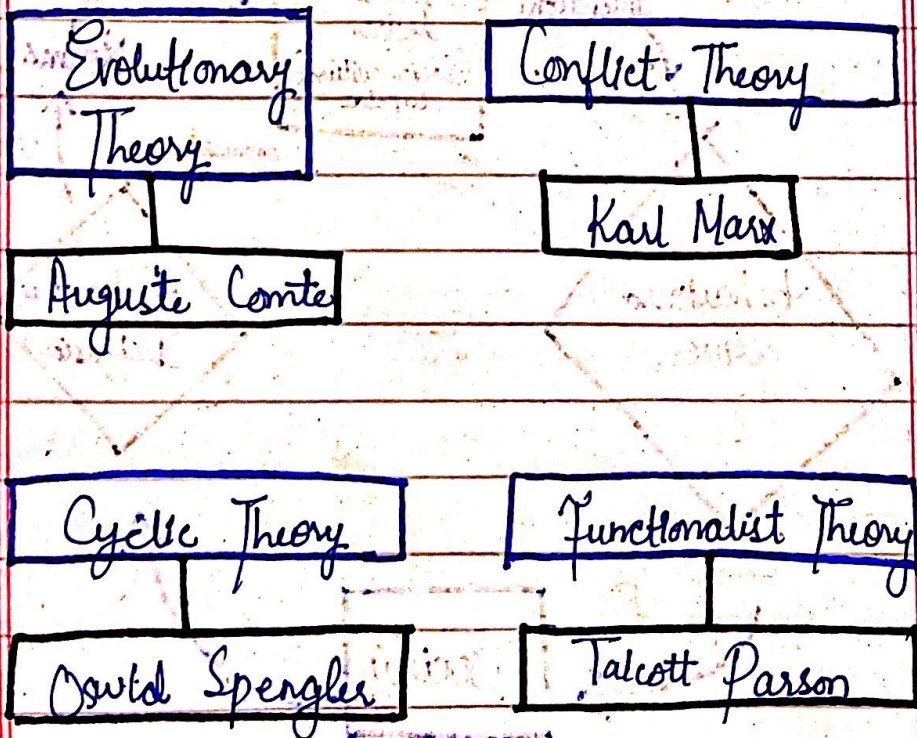 Evolutionary
Theory
Auguste Comte
Conflict Theory
Karl Marx
Cyclic Theory
Spengler
Functionalist Theory
Talcott Parson